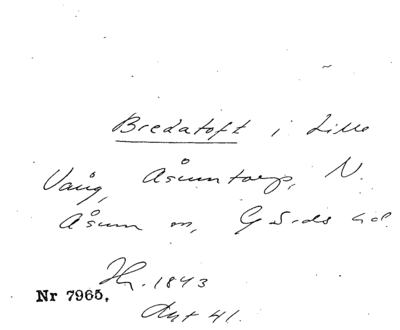 Bredatoft i Lille
Vång, Åsumtorp, N.
Åsum sn, Gärds hd.
Hr. 1843
Nr 7965.
Akt 41.